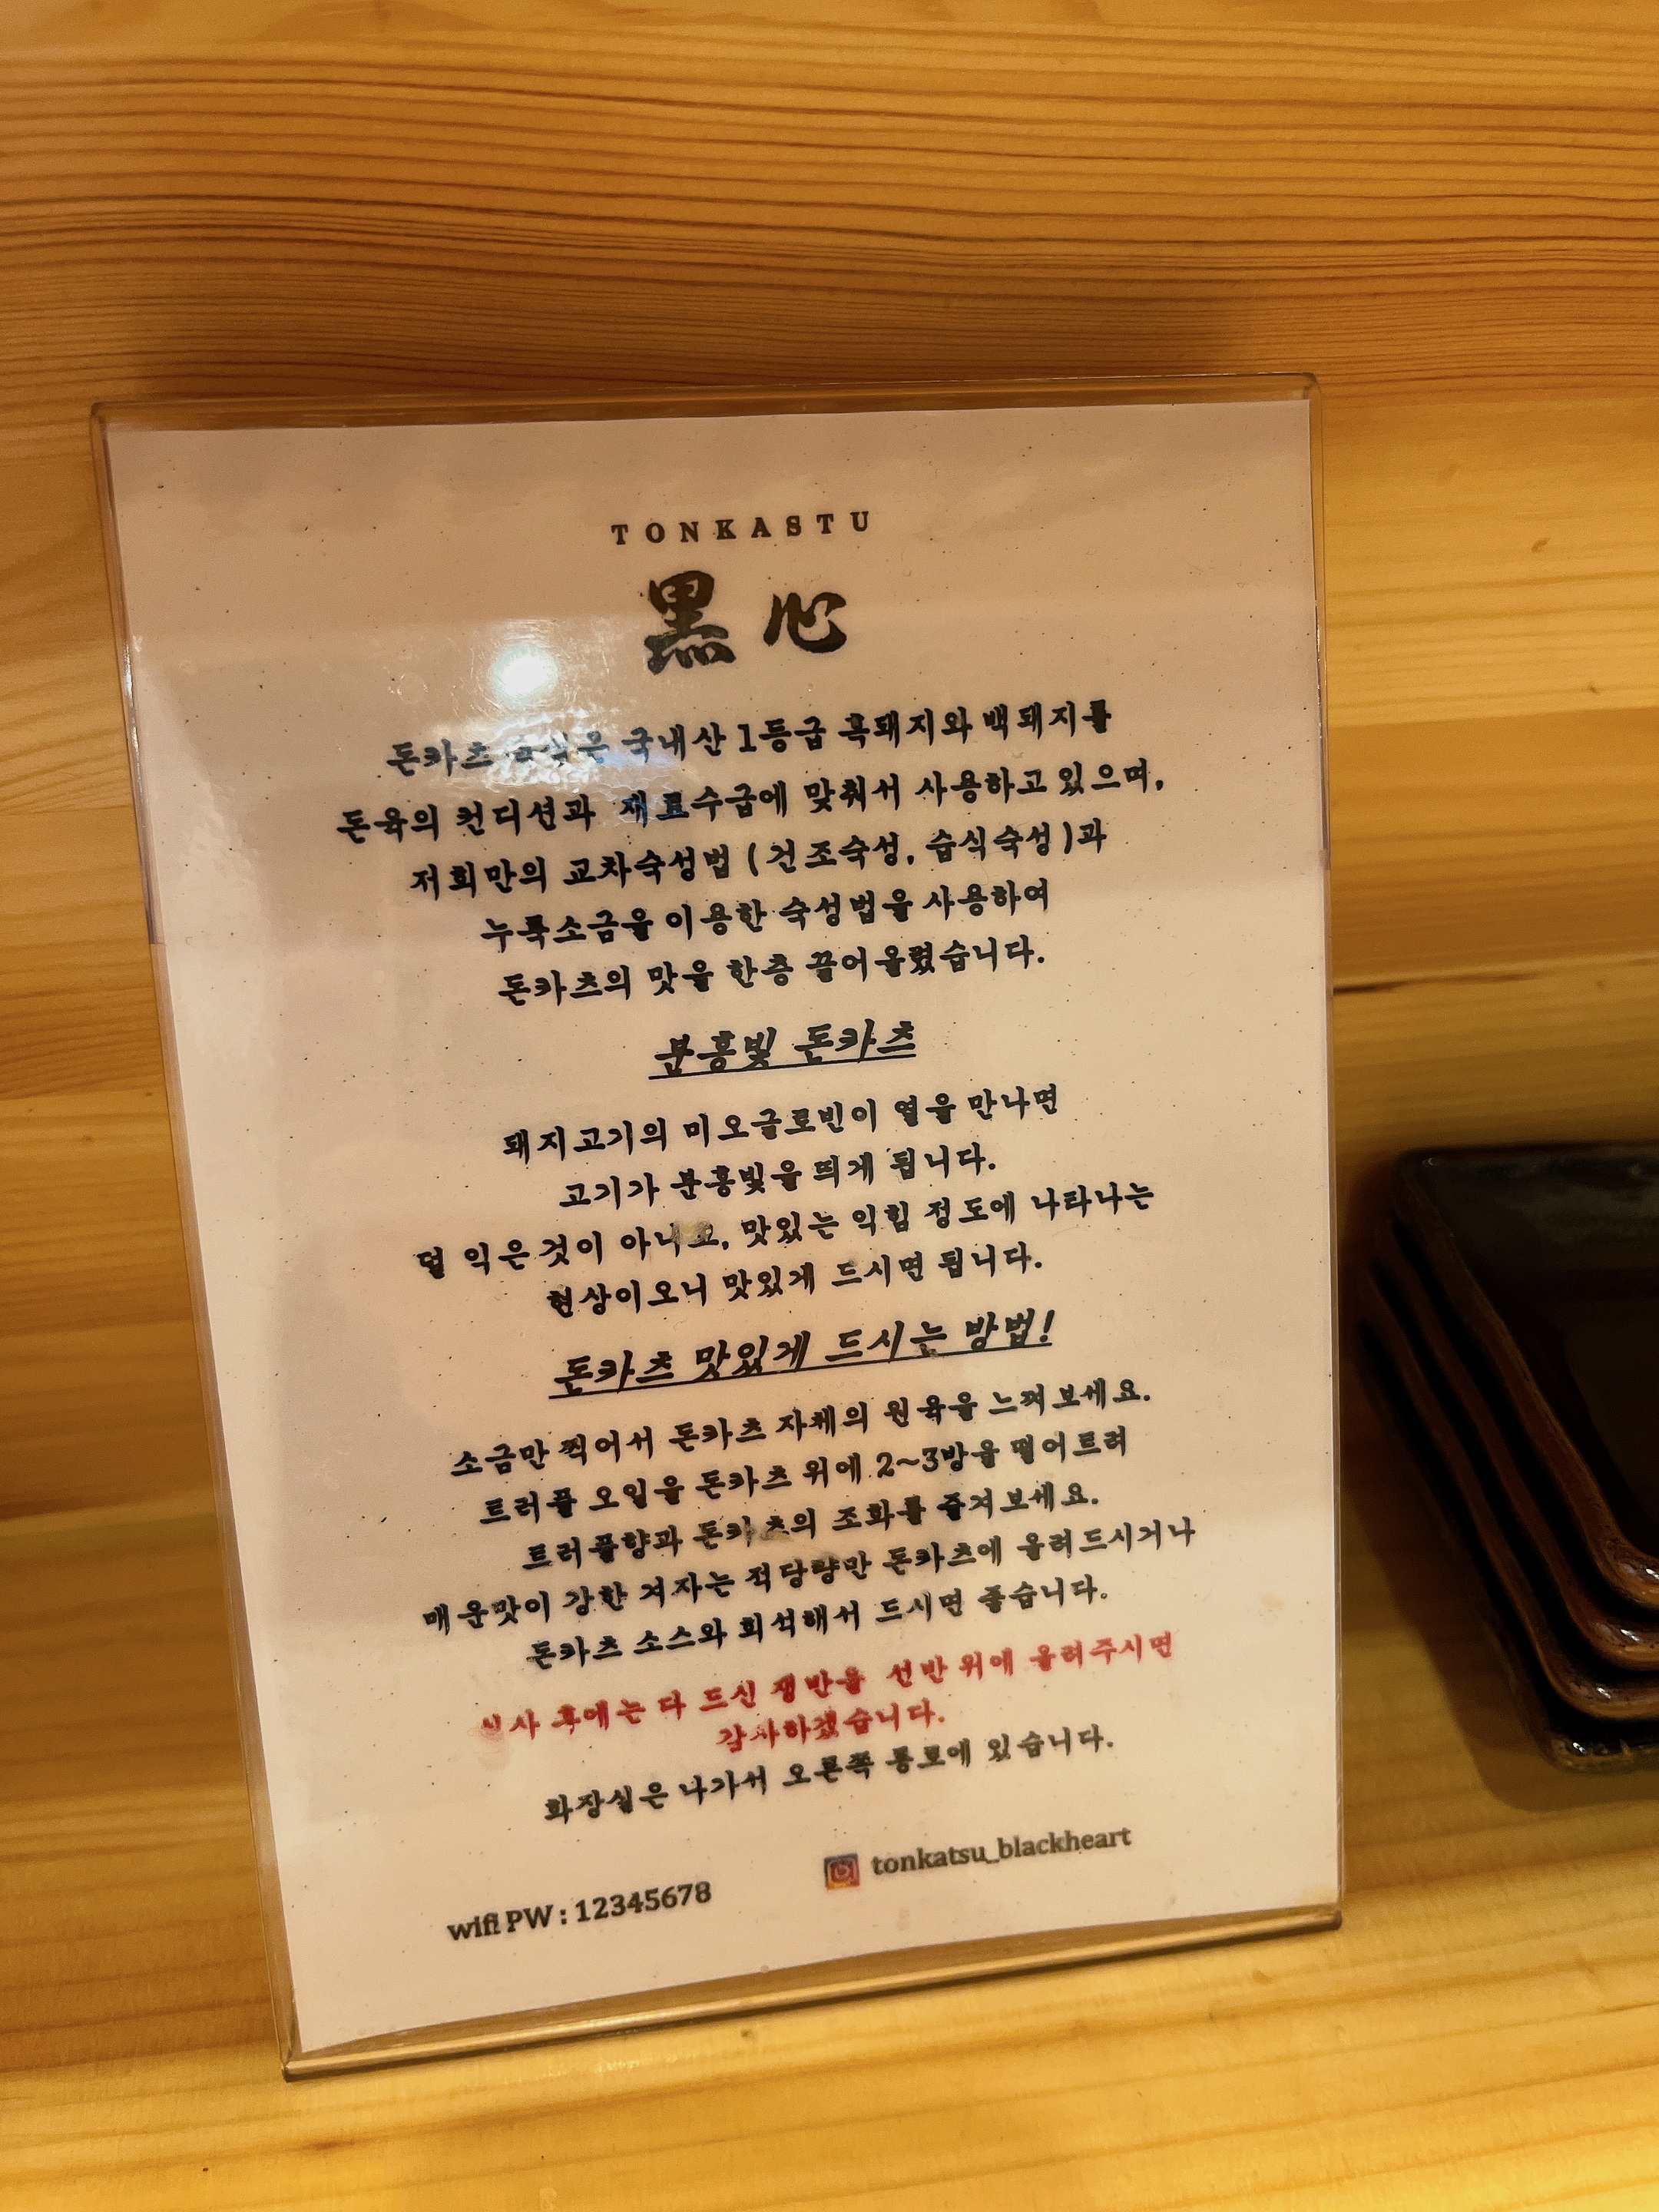 TONKASTU
黑心
돈카츠 은 국내산 1등급 흑돼지와 백돼지를
돈육의 컨디션과 재료수급에 맞춰서 사용하고 있으며,
저희만의 교차숙성법 (건조숙성, 습식숙성)과
누룩소금을 이용한 숙성법을 사용하여
돈카츠의 맛을 한층 끌어올렸습니다.
분홍빛 돈카츠
돼지고기의 미오글로빈이 열을 만나면
고기가 분홍빛을 띄게 됩니다.
덜 익은 것이 아니고, 맛있는 익힘 정도에 나타나는
현상이오니 맛있게 드시면 됩니다.
돈카츠 맛있게 드시는 방법!
소금만 찍어서 돈카츠 자체의 원육을 느껴보세요.
트러플 오일을 돈카츠 위에 2~3방울 떨어트려
트러플향과 돈카츠의 조화를 즐겨보세요.
매운맛이 강한 겨자는 적당량만 돈카츠에 올려드시거나
돈카츠 소스와 희석해서 드시면 좋습니다.
식사 후에는 다 드신 쟁반을 선반 위에 올려주시면
감사하겠습니다.
화장실은 나가서 오른쪽 통로에 있습니다.
wifi PW : 12345678
tonkatsu_blackheart